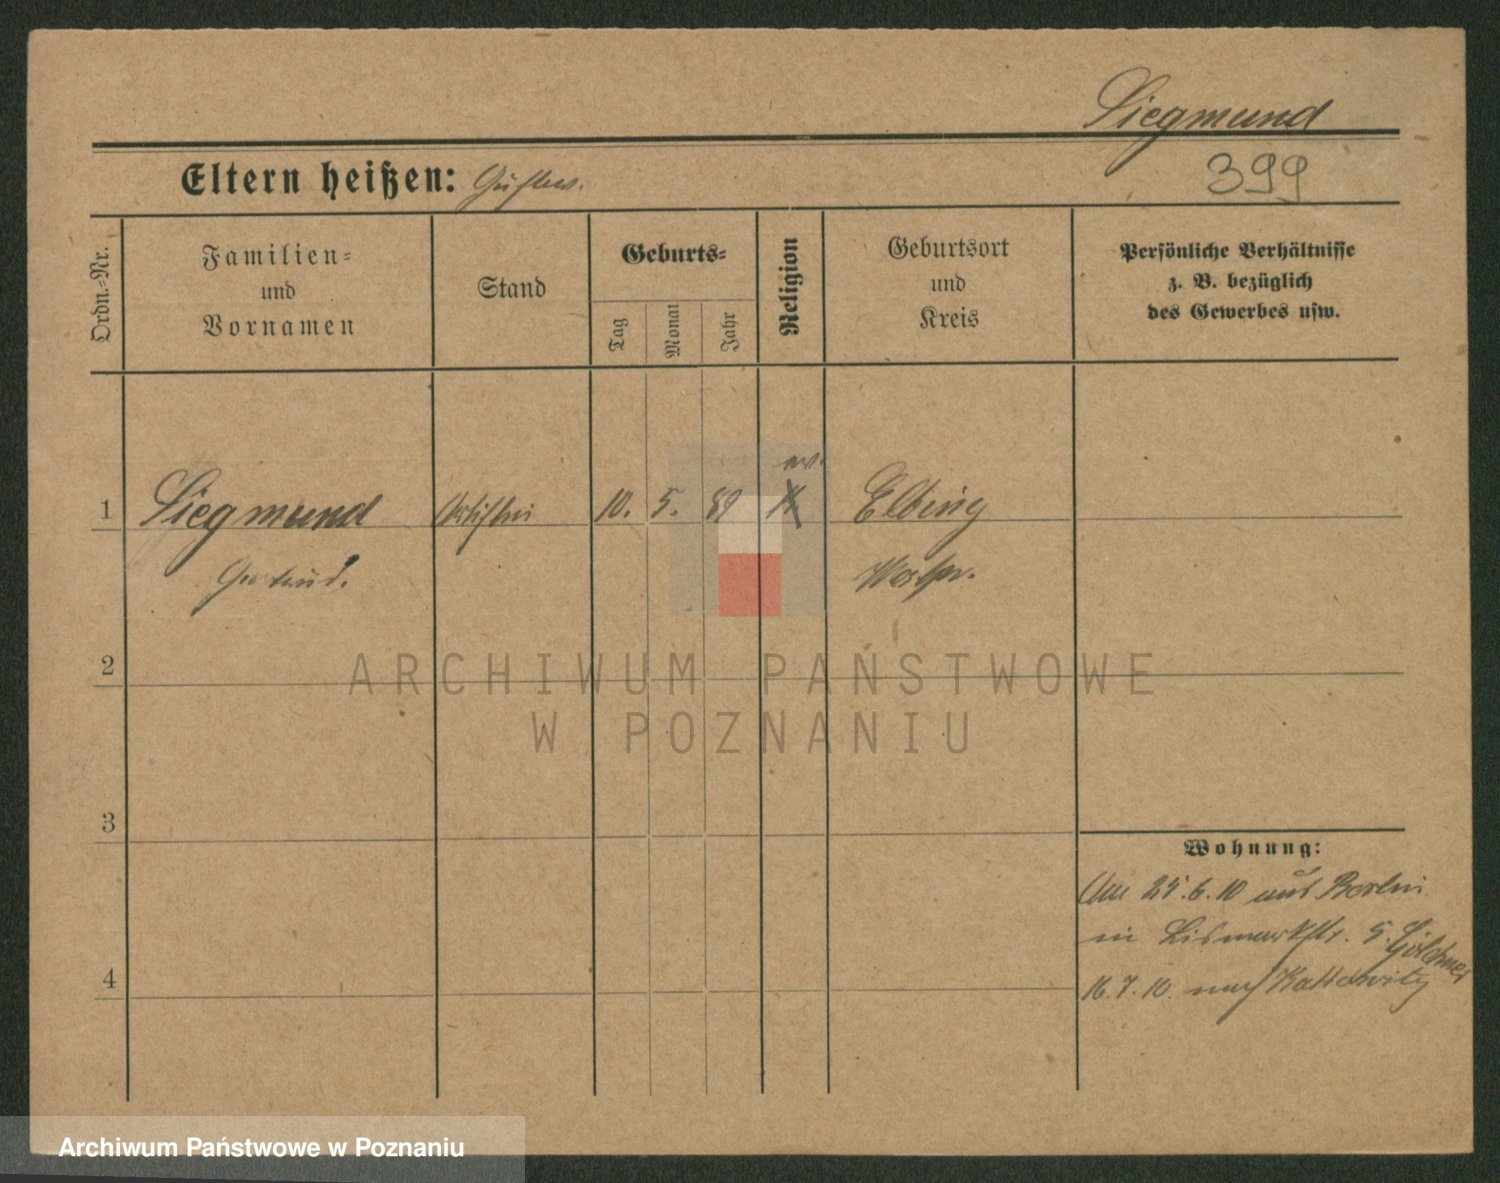 Siegmund
399
Eltern heißen: Gustav.
Ordn.-Nr.
Familien-
und
Vornamen
Stand
Geburts-
Tag
Monat
Jahr
Religion
Geburtsort
und
Kreis
Persönliche Verhältnisse
z. B. bezüglich
des Gewerbes usw.
ev.
1 Siegmund Artistin 10. 5. 89 K Elbing
Gertrud. Westpr.
2
ARCHIWUM PAŃSTWOWE
W POZNANIU
3
Wohnung:
Am 25.6.10 aus Berlin
in Bismarkstr. 5.
4
16.7.10. nach Kattowitz
Archiwum Państwowe w Poznaniu